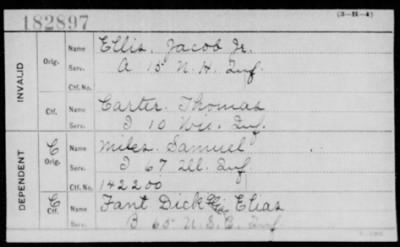 182897
(3-H-4)
INVALID
Orig.
Name Ellis, Jacob Jr.
Serv. A 15 N.H. Inf.
Ctf. No.
Ctf.
Name Carter, Thomas
Serv. I 10 Wis. Inf.
DEPENDENT
C Orig.
Name Miles Samuel
Serv. I 67 Ill. Inf
Ctf. No. 142200
C Ctf.
Name Fant Dick Elias
Serv. B 65 U.S.C. Inf